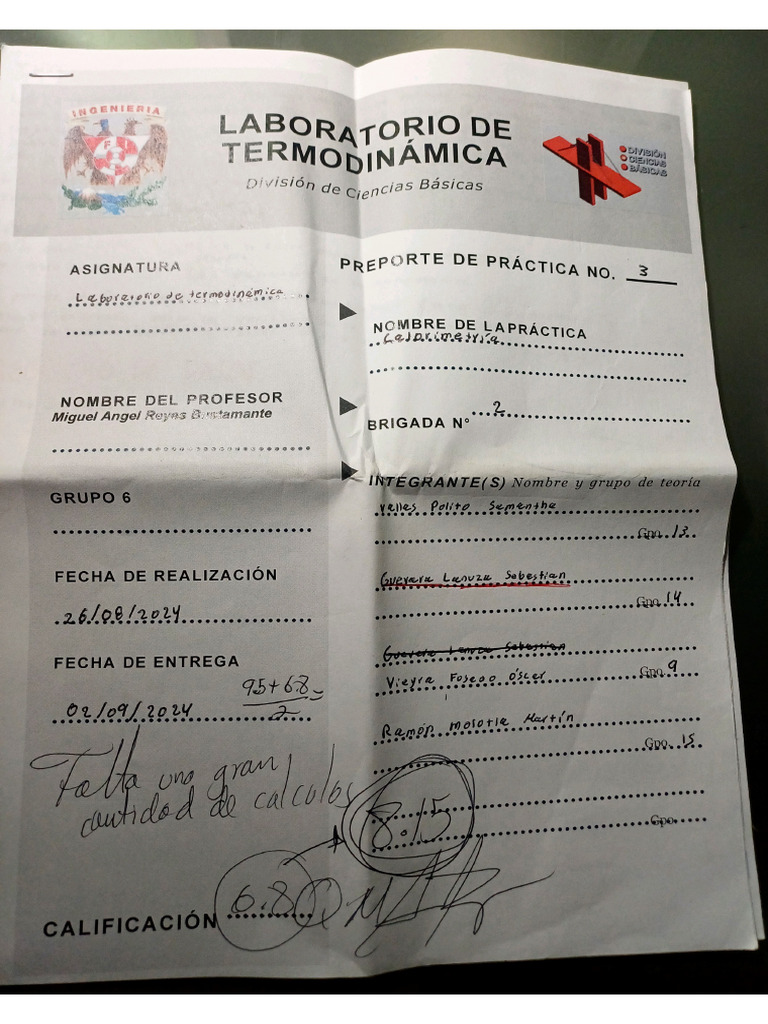 INGENIERIA
LABORATORIO DE
TERMODINÁMICA
División de Ciencias Básicas
DIVISIÓN
CIENCIAS
BÁSICAS
ASIGNATURA
Laboratorio de termodinámica
NOMBRE DEL PROFESOR
Miguel Angel Reyes Bustamante
GRUPO 6
FECHA DE REALIZACIÓN
26/08/2024
FECHA DE ENTREGA
95+6.8 =
2
02/09/2024
Falta una gran
cantidad de calculos
CALIFICACIÓN 6.8
PREPORTE DE PRÁCTICA NO. 3
NOMBRE DE LAPRÁCTICA
Calorimetría
BRIGADA N° 2
INTEGRANTE(S) Nombre y grupo de teoría
Valles Polito Samantha
Gpo. 13
Guevara Lanuza Sebastian
Gpo 14
Guevara Lanuza Sebastian
Vieyra Foseoo Óscar Gpo 9
Ramón Molotla Martín
Gpo. 15
8.15
Gpo.